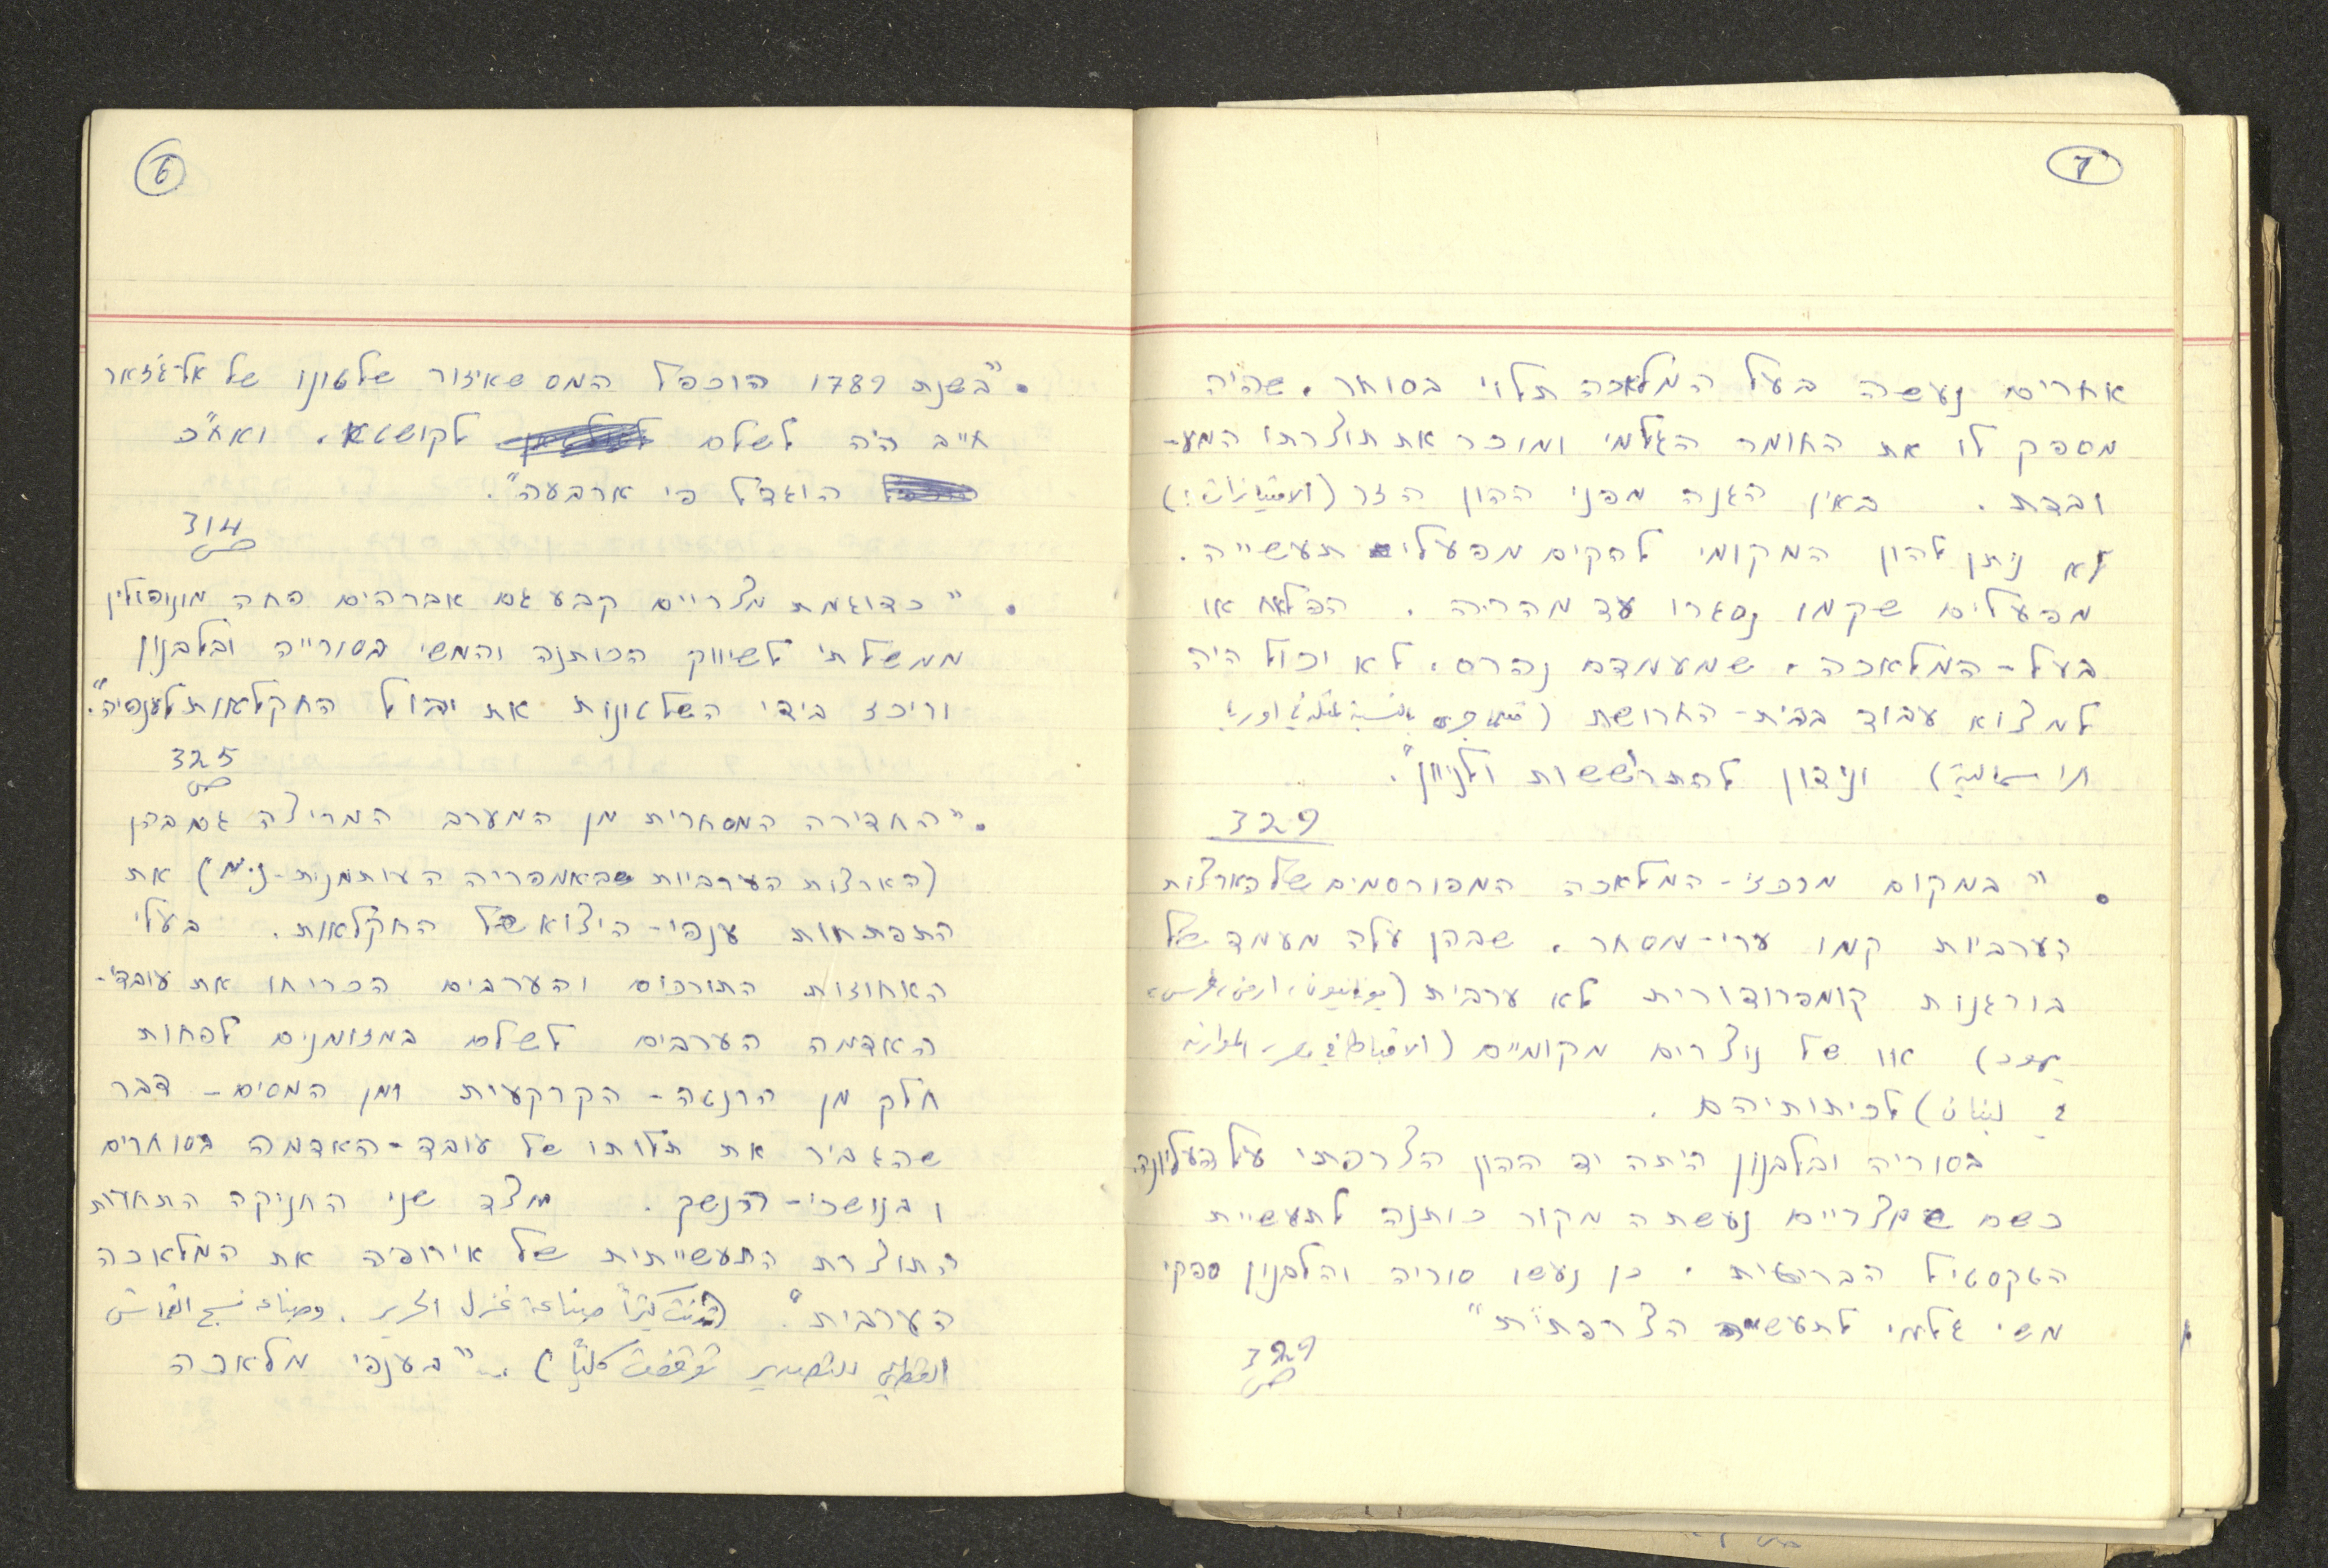 6
• "בשנת 1789 הוכפל המס שאיזור שלטונו של אל-ג'זאר
חייב היה לשלם לקושטא, ואח"כ
הוגדל פי ארבעה".
ص 314
• "כדוגמת מצריים קבע גם אברהים פחה מונופולין
ממשלתי לשיווק הכותנה והמשי בסורייה ובלבנון
וריכז בידי השלטונות את יבול החקלאות לענפיה".
ص 325
• "החדירה המסחרית מן המערב המריצה גם בהן
(הארצות הערביות שבאמפריה העותמנית - נ.מ) את
התפתחות ענפי-היצוא של החקלאות. בעלי
האחוזות התורכים והערבים הכריחו את עובדי-
האדמה הערבים לשלם במזומנים לפחות
חלק מן הרנטה-הקרקעית ומן המסים - דבר
שהגביר את תלותו של עובד-האדמה בסוחרים
ובנושכי-הנשך. מצד שני החניקה התחרות
התוצרת התעשייתית של אירופה את המלאכה
הערבית". (تدنت كثيراً صناعة غزل الحرير، وصناعة نسج القماش
القطني للتصدير توقفت كلياً). "בענפי מלאכה
7
אחרים נעשה בעל המלאכה תלוי בסוחר, שהיה
מספק לו את החומר הגלמי ומוכר את תוצרתו המע-
ובדת. באין הגנה מפני ההון הזר (الامتيازات!)
לא ניתן להון המקומי להקים מפעלי תעשייה.
מפעלים שקמו נסגרו עד מהריה. הפלאח או
בעל-המלאכה, שמעמדם נהרס, לא יכול היה
למצוא עבוד בבית-החרושת (بالنسبة لمثله في اوربا
الرأسمالية) ונידון להתרוששות ולניוון".
329
• "במקום מרכזי-המלאכה המפורסמים של הארצות
הערביות קמו ערי-מסחר, שבהן עלה מעמד של
בורגנות קומפרודורית לא ערבית (يونانيون، ارمن، فرس،
يهود) או של נוצרים מקומיים (الاقباط في مصر، الموارنه
في لبنان) לכיתותיהם.
בסוריה ובלבנון היתה יד ההון הצרפתי על העליונה.
כשם שמצריים נעשתה מקור כותנה לתעשיית
הטקסטיל הבריטית, כן נעשו סוריה והלבנון ספקי
משי גלמי לתעשיה הצרפתית"
ص 329